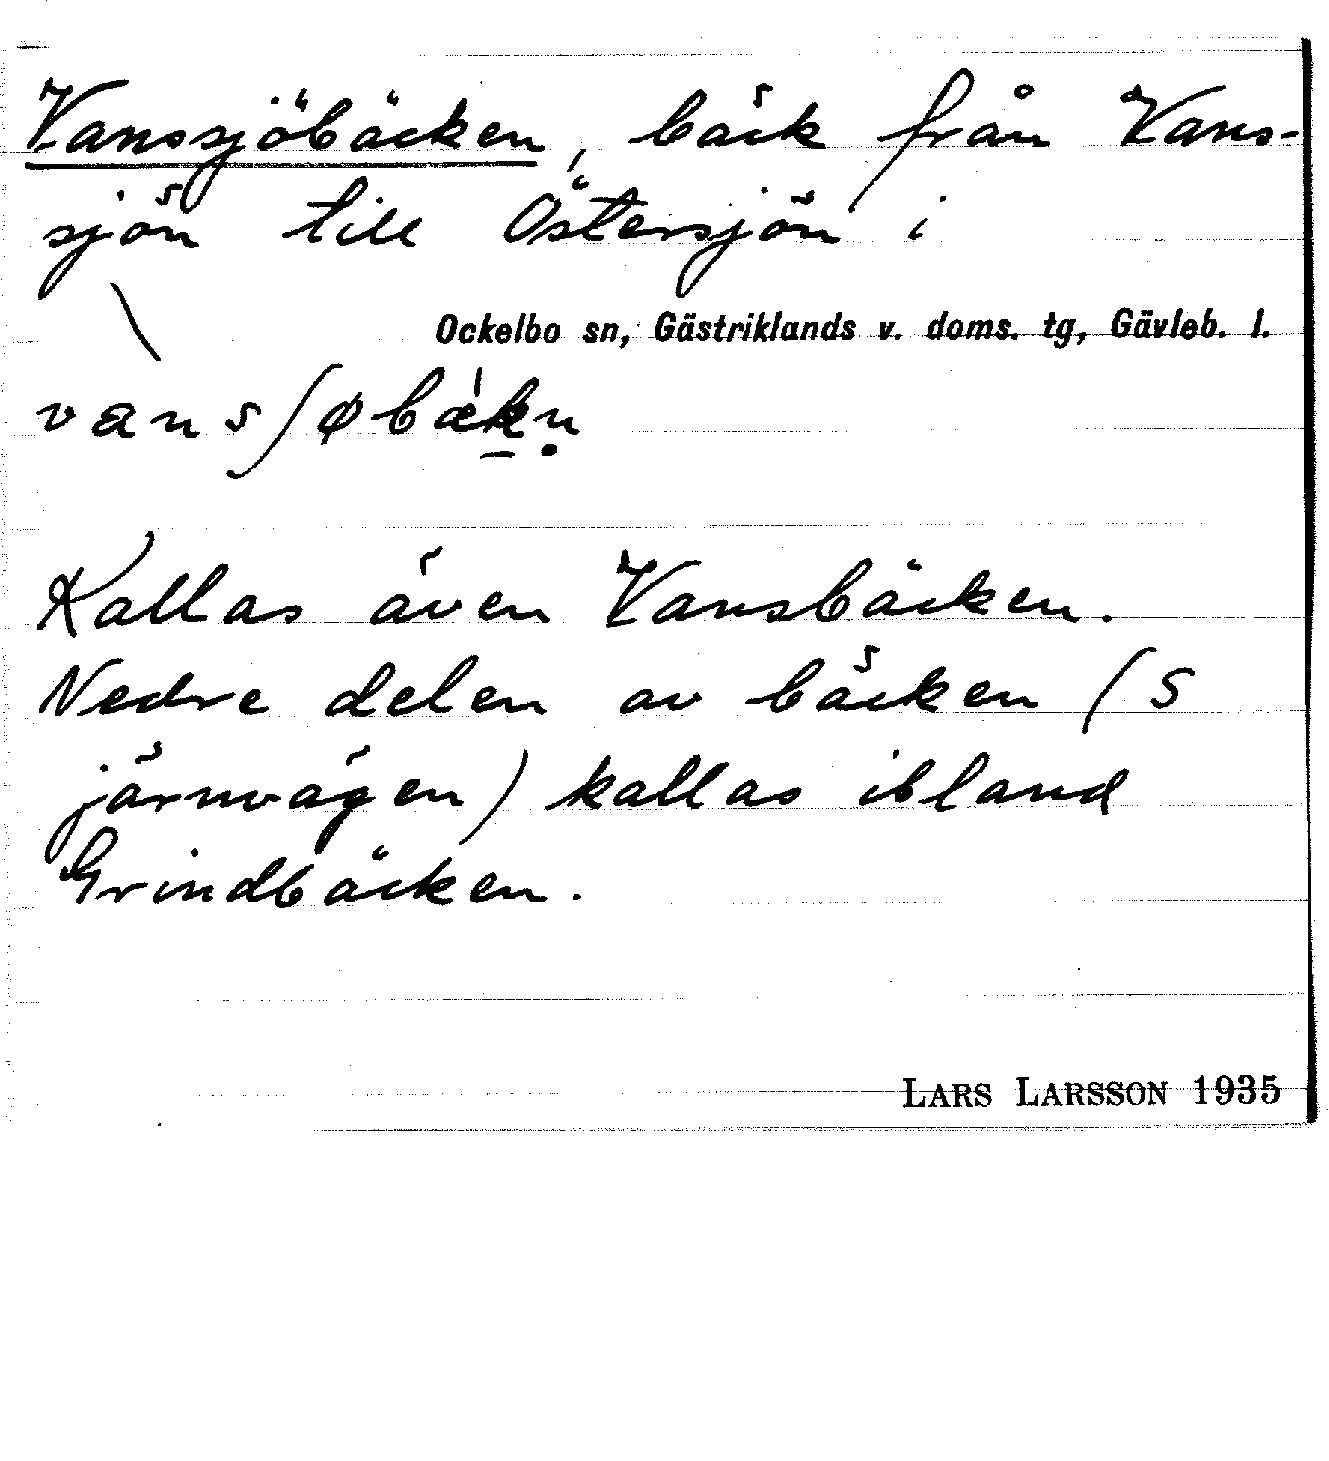 Vanssjöbäcken, bäck från Vans-
sjön till Östersjön i
Ockelbo sn, Gästriklands v. doms. tg, Gävleb. l.
vansʃøbækn̥
Kallas även Vansbäcken.
Nedre delen av bäcken (S
järnvägen) kallas ibland
Grindbäcken.
LARS LARSSON 1935